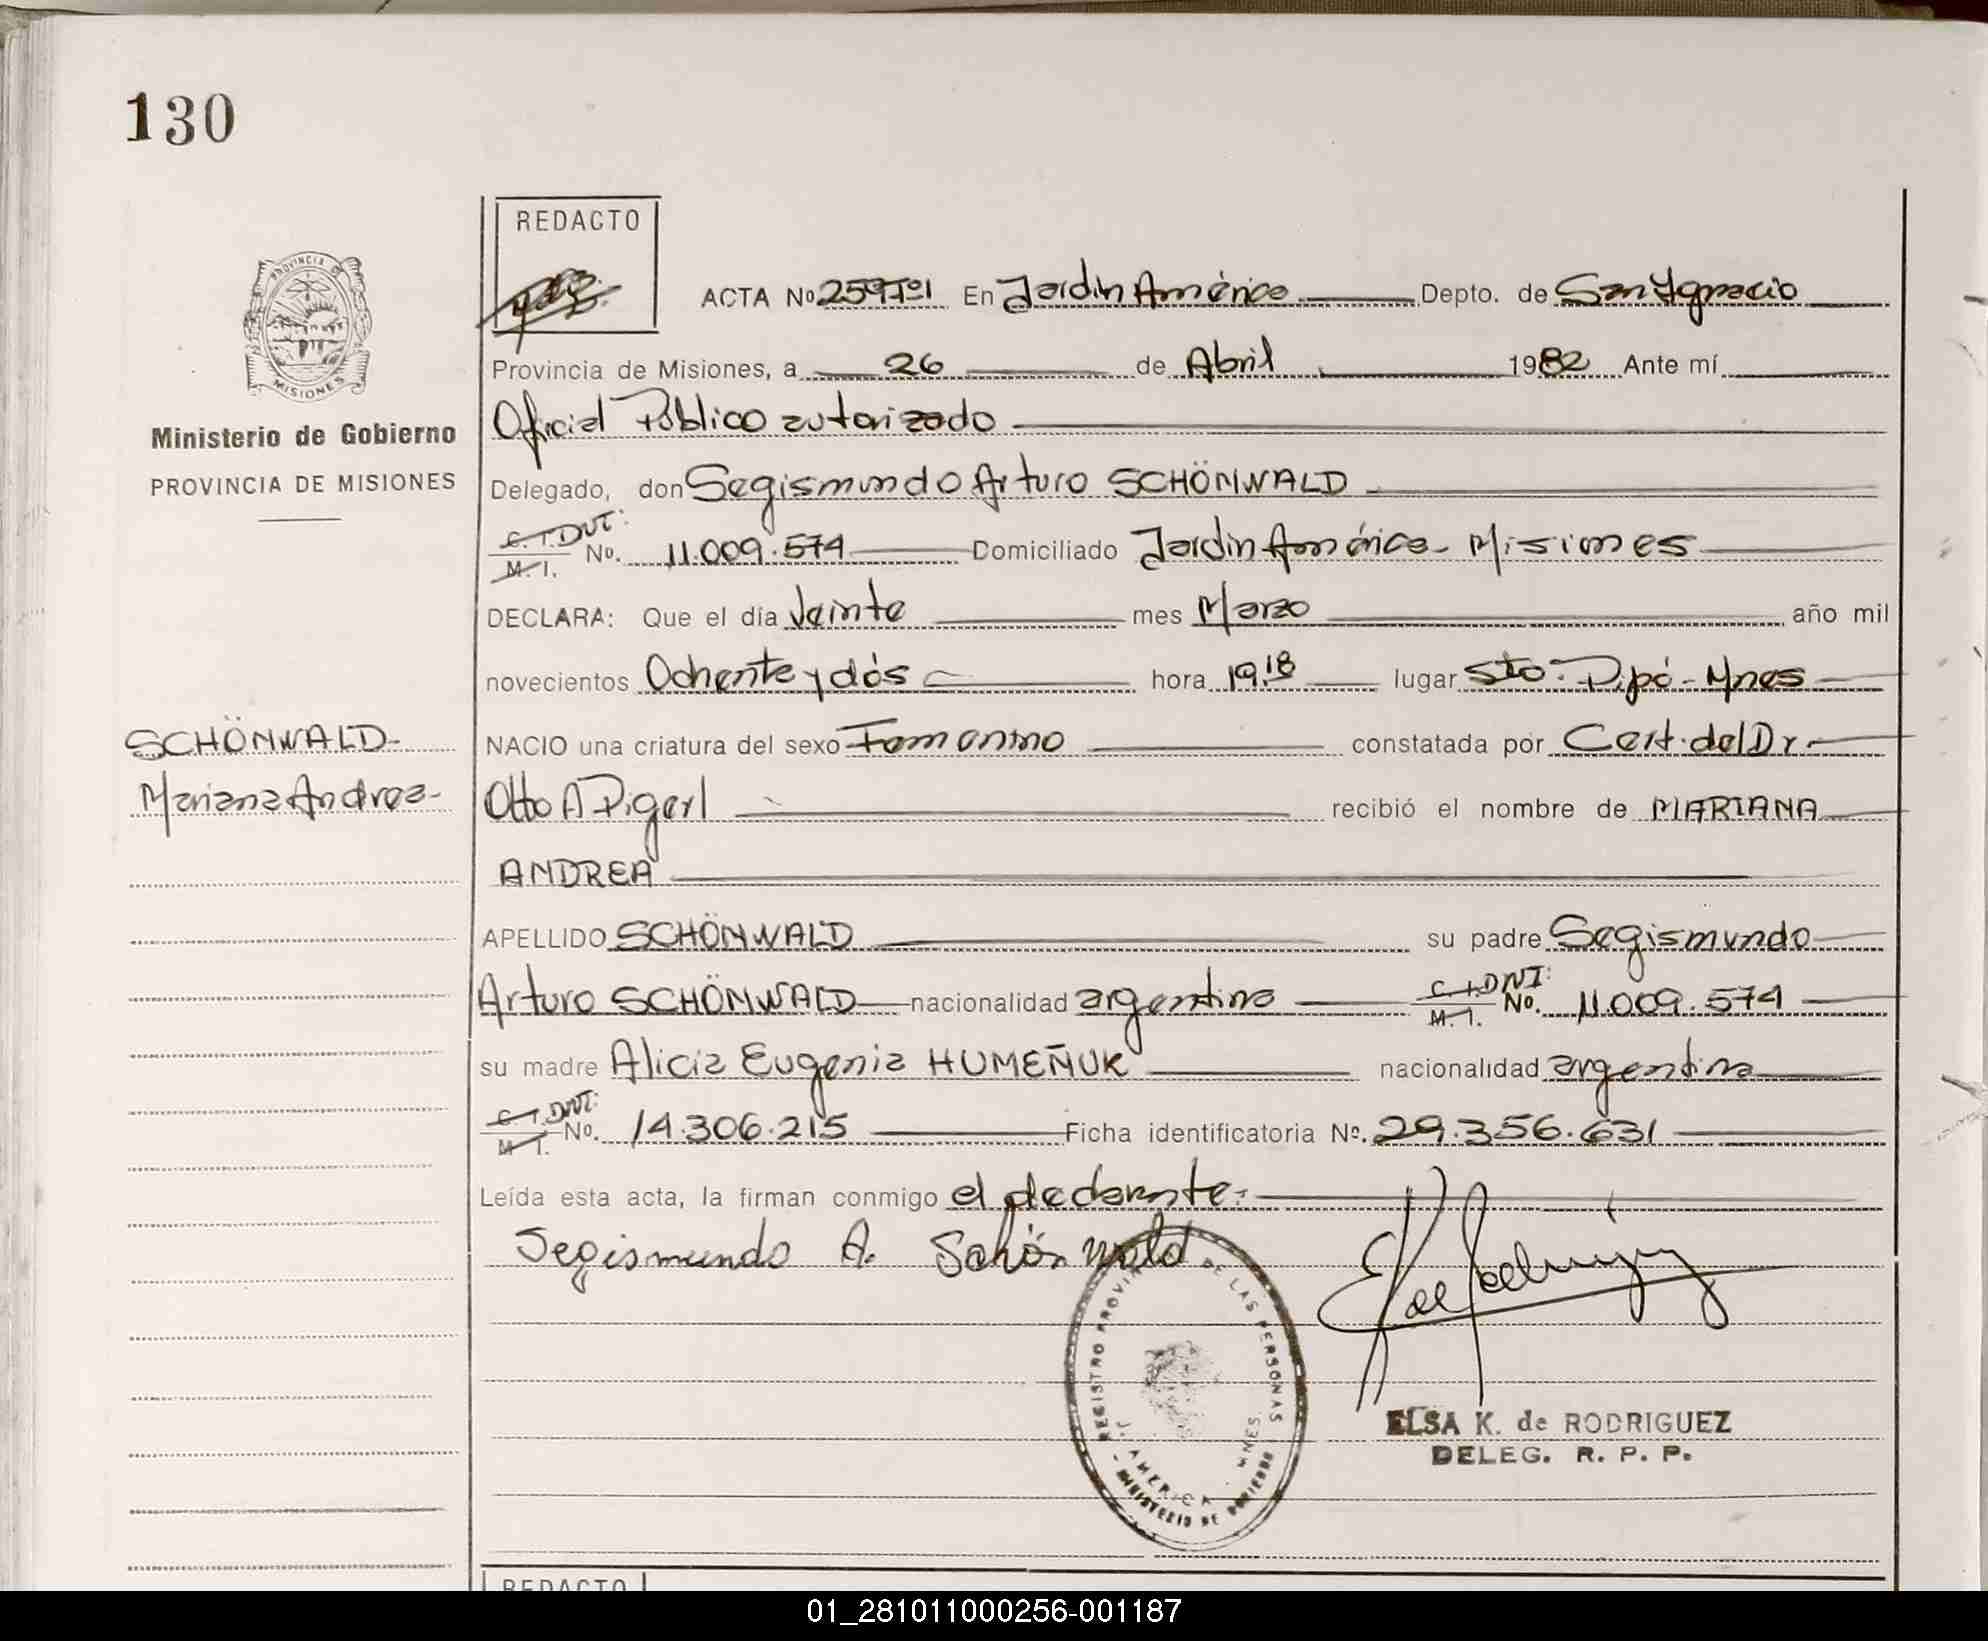 130
REDACTO
PROVINCIA DE
MISIONES
ACTA No 259 Tº1 En Jardin América Depto. de San Ignacio
Provincia de Misiones, a 26 de Abril 1982 Ante mí
Ministerio de Gobierno
PROVINCIA DE MISIONES
Oficial Público autorizado
Delegado, don Segismundo Arturo SCHÖNWALD
C. I. DNI: M. I. No. 11.009.574 Domiciliado Jardin América - Misiones
DECLARA: Que el día Veinte mes Marzo año mil
novecientos Ochenta y dós hora 19.18 lugar Sto: Pipó - Mnes
SCHÖNWALD-
Mariana Andrea-
NACIO una criatura del sexo Femenino constatada por Cert. del Dr.
Otto A Pigerl recibió el nombre de MARIANA
ANDREA
APELLIDO SCHÖNWALD su padre Segismundo
Arturo SCHÖNWALD nacionalidad argentina C. I. DNI: M. I. No. 11.009.574
su madre Alicia Eugenia HUMEÑUK nacionalidad argentina
C. I. DNI: M. I. No. 14.306.215 Ficha identificatoria Nº. 29.356.631
Leída esta acta, la firman conmigo el declarante.
Segismundo A. Schönwald
REGISTRO PROVIN DE LAS PERSONAS
J. AMERICA - MNES.
- MINISTERIO DE GOBIERNO
ELSA K. de RODRIGUEZ
DELEG. R. P. P.
REDACTO
01_281011000256-001187